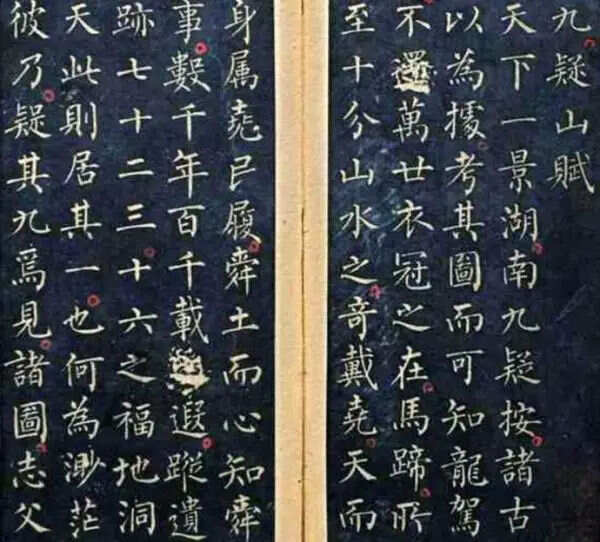 九疑山賦
天下一景湖南九疑按諸古
以為據考其圖而可知龍駕
不還萬世衣冠之在馬蹄所
至十分山水之奇戴堯天而
身属堯民履舜土而心知舜
事數千年百千載遐蹤遺
跡七十二三十六之福地洞
天此則居其一也何為渺茫
彼乃疑其九爲見諸圖志父